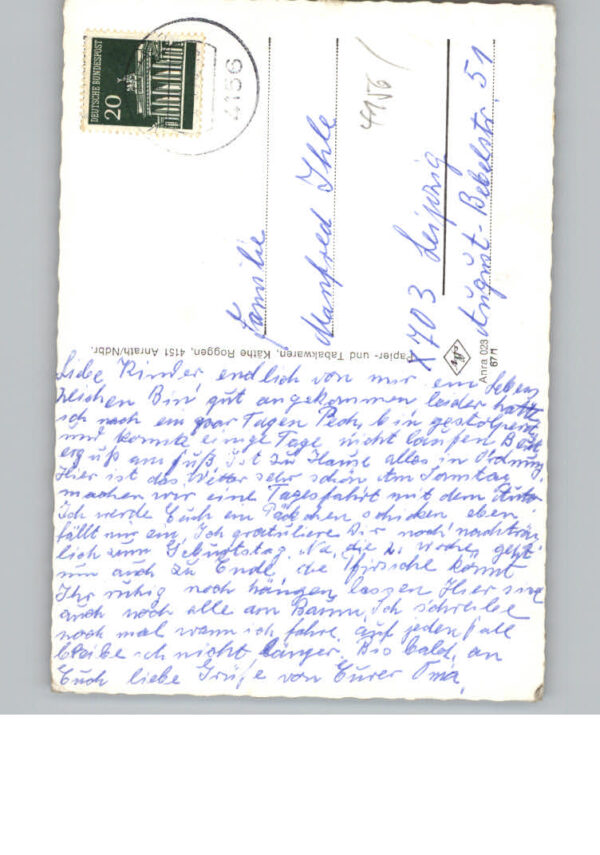 DEUTSCHE BUNDESPOST
20
4156
4156/
Familie
Manfred Ihle
X703 Leipzig
August-Bebelstr. 51
Papier- und Tabakwaren, Käthe Roggen, 4151 Anrath/Ndbr.
Anra 023
67 H
Liebe Kinder endlich von mir ein Leben
zeichen Bin gut angekommen leider hatte
ich nach ein paar Tagen Pech, bin gestolpert
und konnte einige Tage nicht laufen Blut
erguß am fuß. Ist zu Hause alles in Ordnung,
Hier ist das Wetter sehr schön Am Samstag
machen wir eine Tagesfahrt mit dem Auto
Ich werde Euch ein Päckchen schicken eben
fällt mir ein, Ich gratuliere Dir noch nachträg
lich zum Geburtstag. Na, die 2. Woche geht
nun auch zu Ende, die Kirsche könnt
Ihr ruhig noch hängen lassen Hier sind
auch noch alle am Baum, Ich schreibe
noch mal wann ich fahre, auf jeden fall
bleibe ich nicht länger. Bis bald, an
Euch liebe Grüße von Eurer Oma,